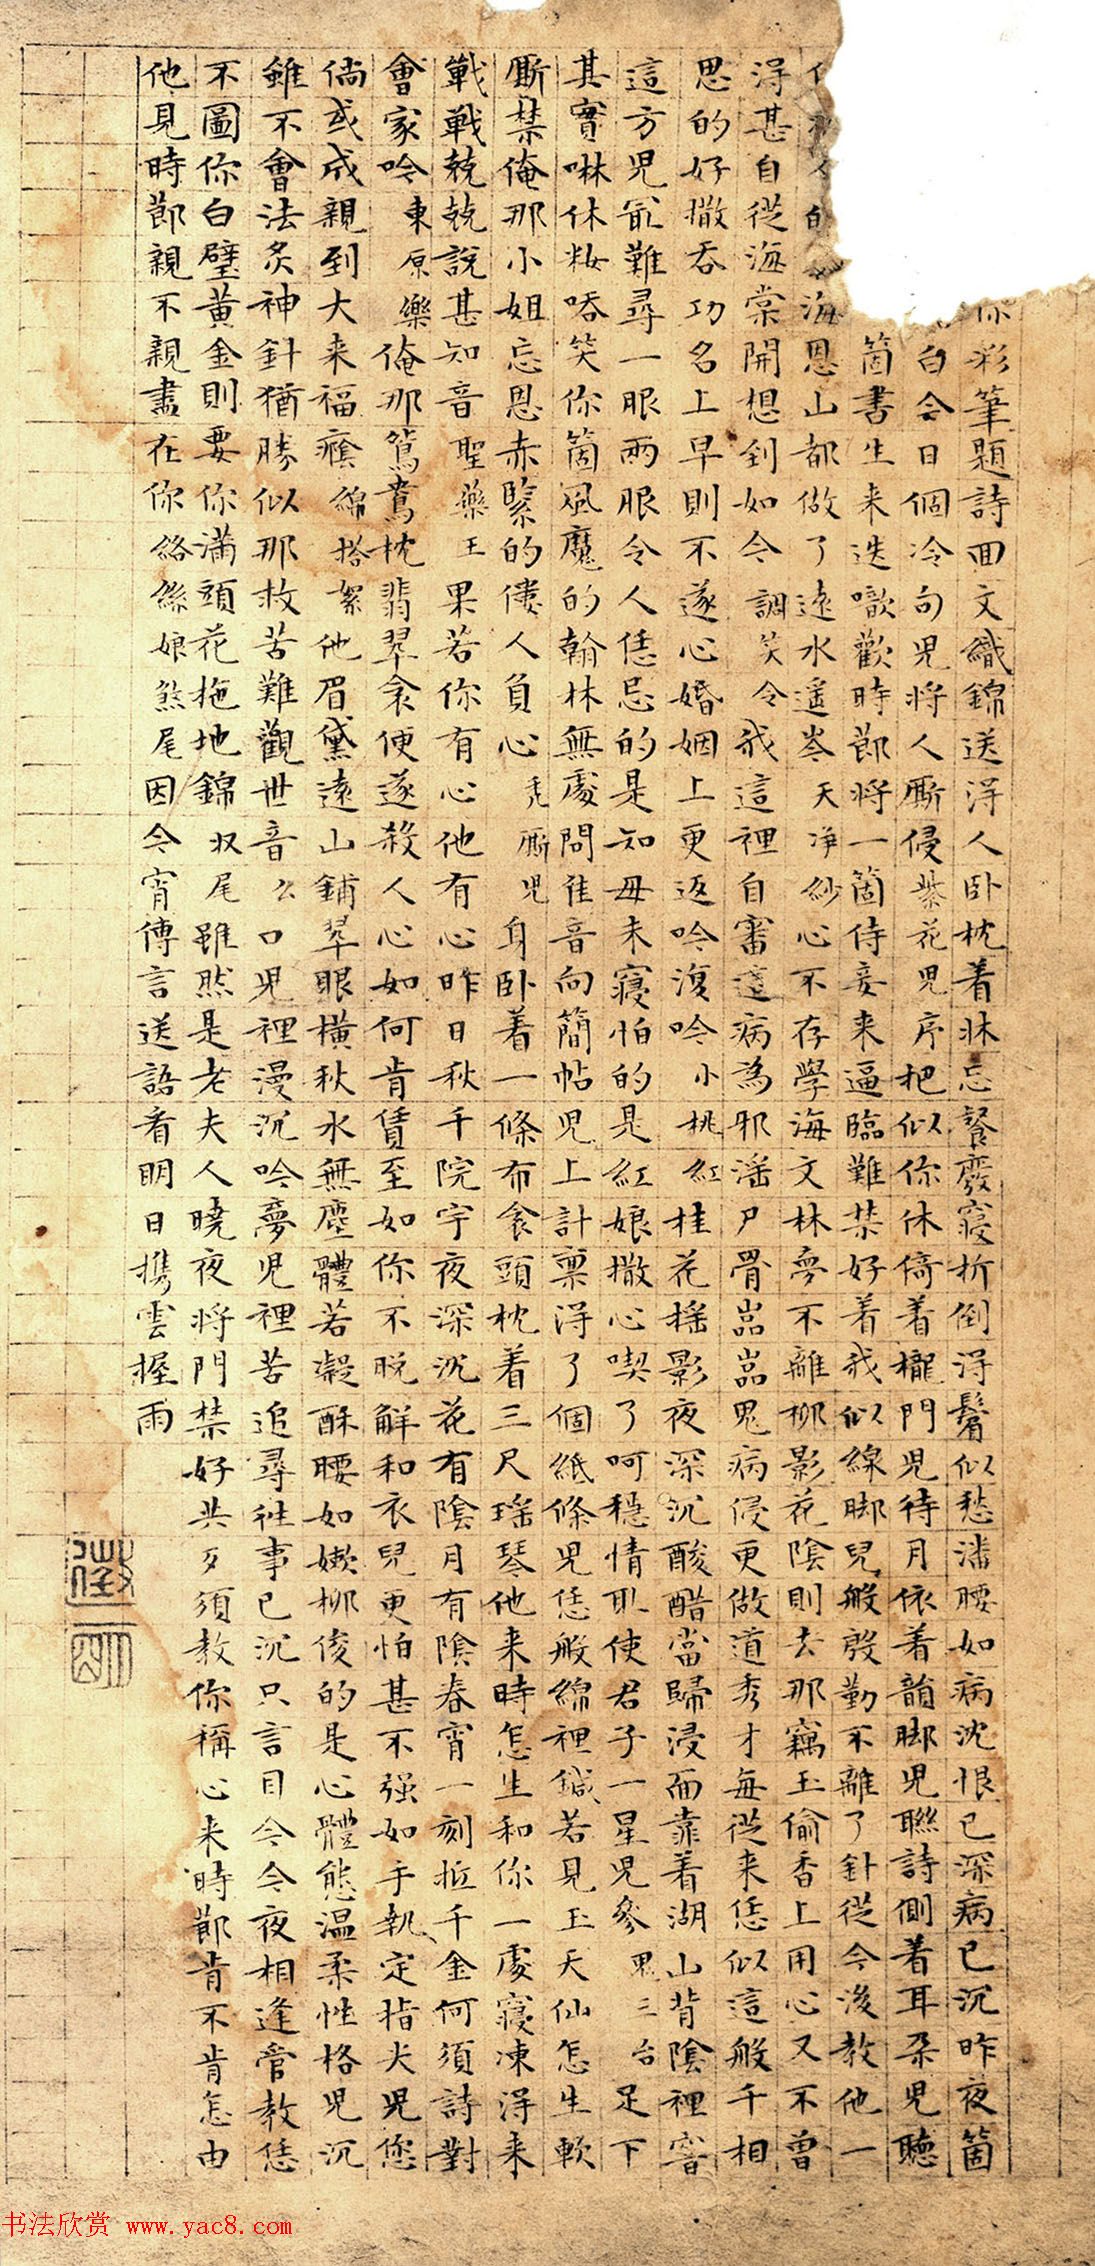 你彩筆題詩回文織錦送淂人卧枕着牀忘餐廢寝折倒淂鬢似愁潘腰如病沈恨已深病已沉昨夜箇
白今日個冷句児將人厮侵紫花児序把似你休倚着櫳門児待月依着韻脚児聮詩側着耳朶児聴
箇書生来迭噷歡時節將一箇侍妾来逼臨難禁好着我似線脚兒般殷勤不離了針從今後教他一
海恩山都做了遠水遥岑天净紗心不存學海文林夢不離柳影花隂則去那竊玉偷香上用心又不曾
淂甚自從海棠開想到如今調笑令我這裡自審這病為邪滛尸骨嵓嵓鬼病侵更做道秀才每從来恁似這般千相
思的好撒吞功名上早則不遂心婚姻上更返吟復吟小桃紅桂花揺影夜深沉酸醋當歸浸面靠着湖山背隂裡窨
這方児㝡難尋一眼兩眼令人恁忌的是知毋未寝怕的是紅娘撒心喫了呵穏情取使君子一星児參鬼三台足下
其實啉休粧唔笑你箇風魔的翰林無處問佳音向簡帖児上計禀淂了個紙條児恁般綿裡鍼若見玉天仙怎生軟
厮禁俺那小姐忘恩赤緊的僂人負心禿厮児身卧着一條布衾頭枕着三尺瑶琴他来時怎生和你一處寝凍淂来
戰戰兢兢說甚知音聖藥王果若你有心他有心昨日秋千院宇夜深沉花有隂月有隂春宵一刻抵千金何須詩對
會家吟東原樂俺那鴛鴦枕翡翠衾便遂殺人心如何肯賃至如你不脱解和衣兒更怕甚不强如手執定指尖児您
倘或成親到大来福癊綿搭絮他眉黛遠山鋪翠眼橫秋水無塵體若凝酥腰如嫰柳俊的是心體態温柔性格児沉
雖不會法灸神針猶勝似那救苦難觀世音幺口児裡漫沉吟夢児裡苦追尋徃事已沉只言目今今夜相逢當教恁
不圖你白璧黄金則要你滿頭花拖地錦収尾雖然是老夫人曉夜將門禁好共歹須教你稱心来時節肯不肯怎由
他見時節親不親盡在你絡絲娘煞尾因今宵傳言送語看明日攜雲握雨
书法欣赏 www.yac8.com